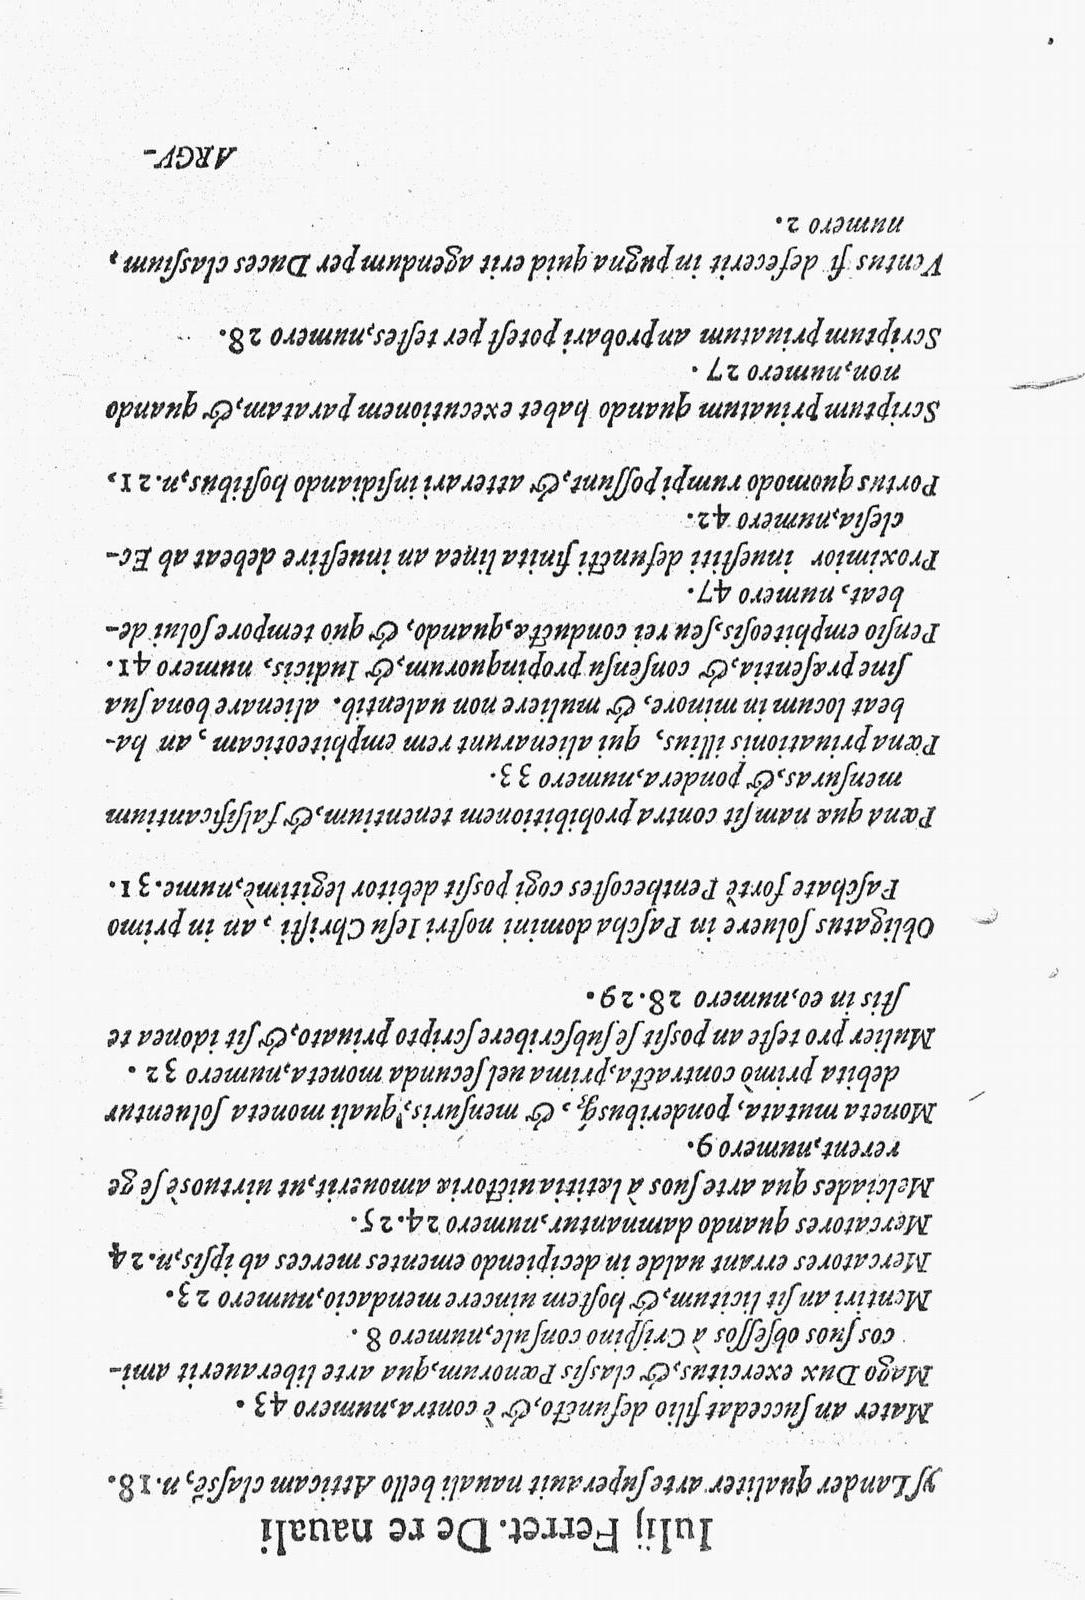 Iulij Ferret. De re nauali
yſ Lander qualiter arte ſuperauit nauali bello Atticam claſsẽ, n.18.
Mater an ſuccedat filio defuncto, & è contra, numero 43.
Mago Dux exercitus, & claſsis Pœnorum, qua arte liberauerit ami-
cos ſuos obſeſſos à Criſpino conſule, numero 8.
Mentiri an ſit licitum, & hoſtem uincere mendacio, numero 23.
Mercatores errant ualde in decipiendo ementes merces ab ipſis, n.24
Mercatores quando damnantur, numero 24.25.
Melciades qua arte ſuos à lætitia uictoria amouerit, ut uirtuosè ſe ge
rerent, numero 9.
Moneta mutata, ponderibusq́;, & menſuris, quali moneta ſoluentur
debita primò contracta, prima uel ſecunda moneta, numero 32.
Mulier pro teſte an poſsit ſe ſubſcribere ſcripto priuato, & ſit idonea te
ſtis in eo, numero 28.29.
Obligatus ſoluere in Paſcha domini noſtri Ieſu Chriſti, an in primo
Paſchate fortè Penthecoſtes cogi poſsit debitor legitimè, nume.31.
Pœna quæ nam ſit contra prohibitionem tenentium, & falſificantium
menſuras, & pondera, numero 33.
Pœna priuationis illius, qui alienarunt rem emphiteoticam, an ha-
beat locum in minore, & muliere non ualentib. alienare bona ſua
ſine præſentia, & conſenſu propinquorum, & Iudicis, numero 41.
Penſio emphiteoſis, ſeu rei conductæ, quando, & quo tempore ſolui de-
beat, numero 47.
Proximior inueſtiti defuncti finita linea an inueſtire debeat ab Ec-
cleſia, numero 42.
Portus quomodo rumpi poſſunt, & atterari inſidiando hoſtibus, n.21,
Scriptum priuatum quando habet executionem paratam, & quando
non, numero 27.
Scriptum priuatum an probari poteſt per teſtes, numero 28.
Ventus ſi defecerit in pugna quid erit agendum per Duces claſsium,
numero 2.
ARGV-